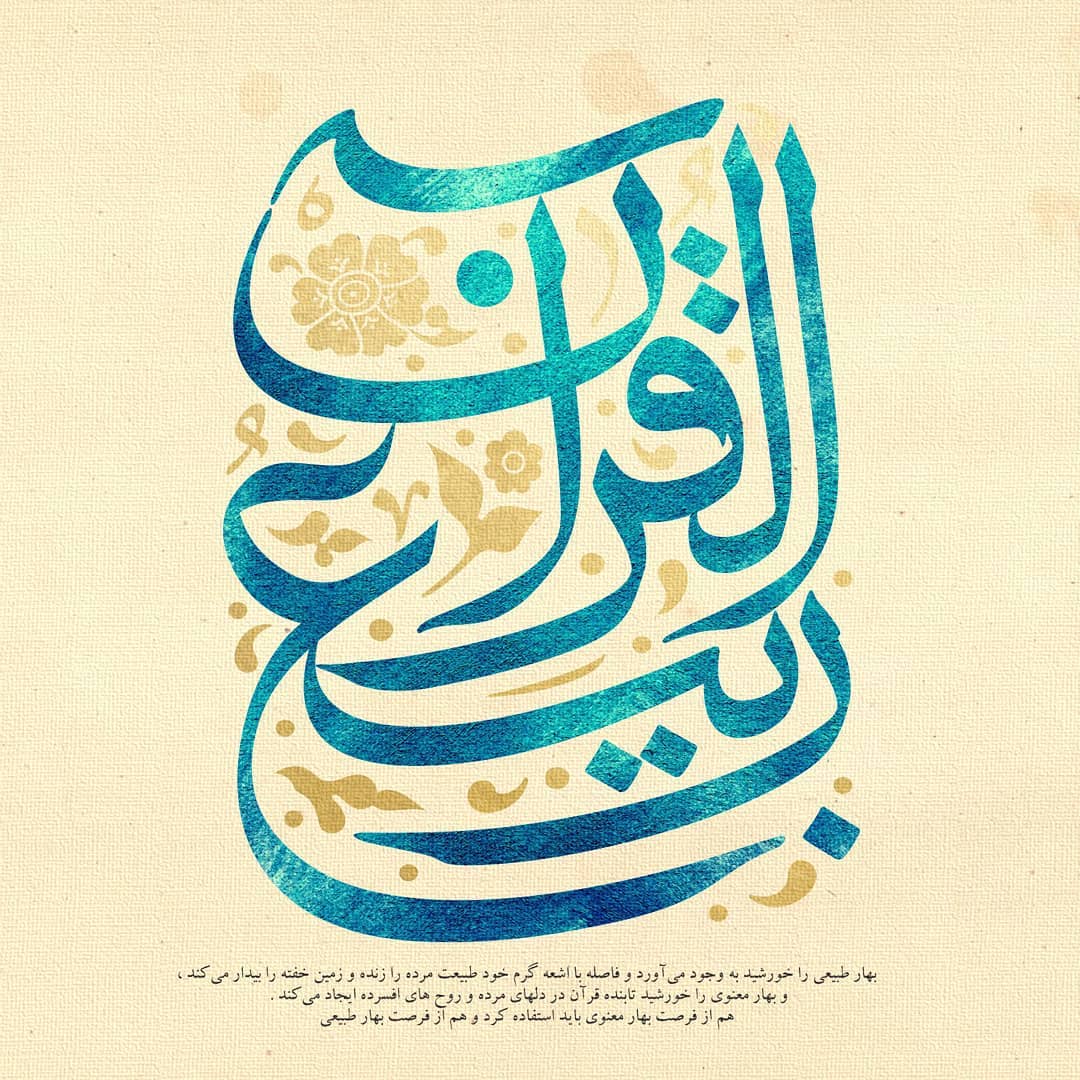 ربيع القرآن
بهار طبیعی را خورشید به وجود می‌آورد و فاصله با اشعه گرم خود طبیعت مرده را زنده و زمین خفته را بیدار می‌کند ،
و بهار معنوی را خورشید تابنده قرآن در دلهای مرده و روح های افسرده ایجاد می‌کند .
هم از فرصت بهار معنوی باید استفاده کرد و هم از فرصت بهار طبیعی